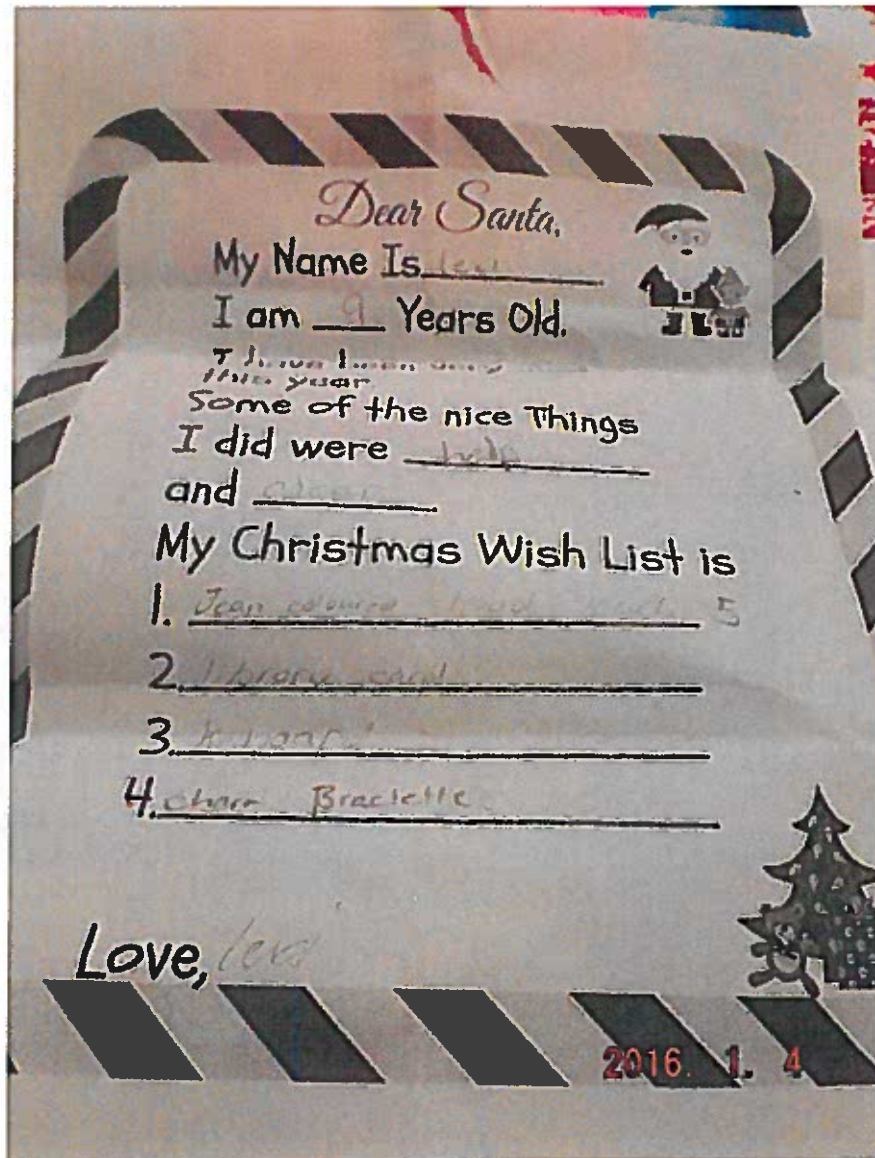 Dear Santa,
My Name Is
I am 9 Years Old.
I have been very
this year
Some of the nice Things
I did were help
and clean
My Christmas Wish List is
1. Jean coloured 5
2. library card
3.
4. charm Braclette
Love, levi
2016. 1. 4